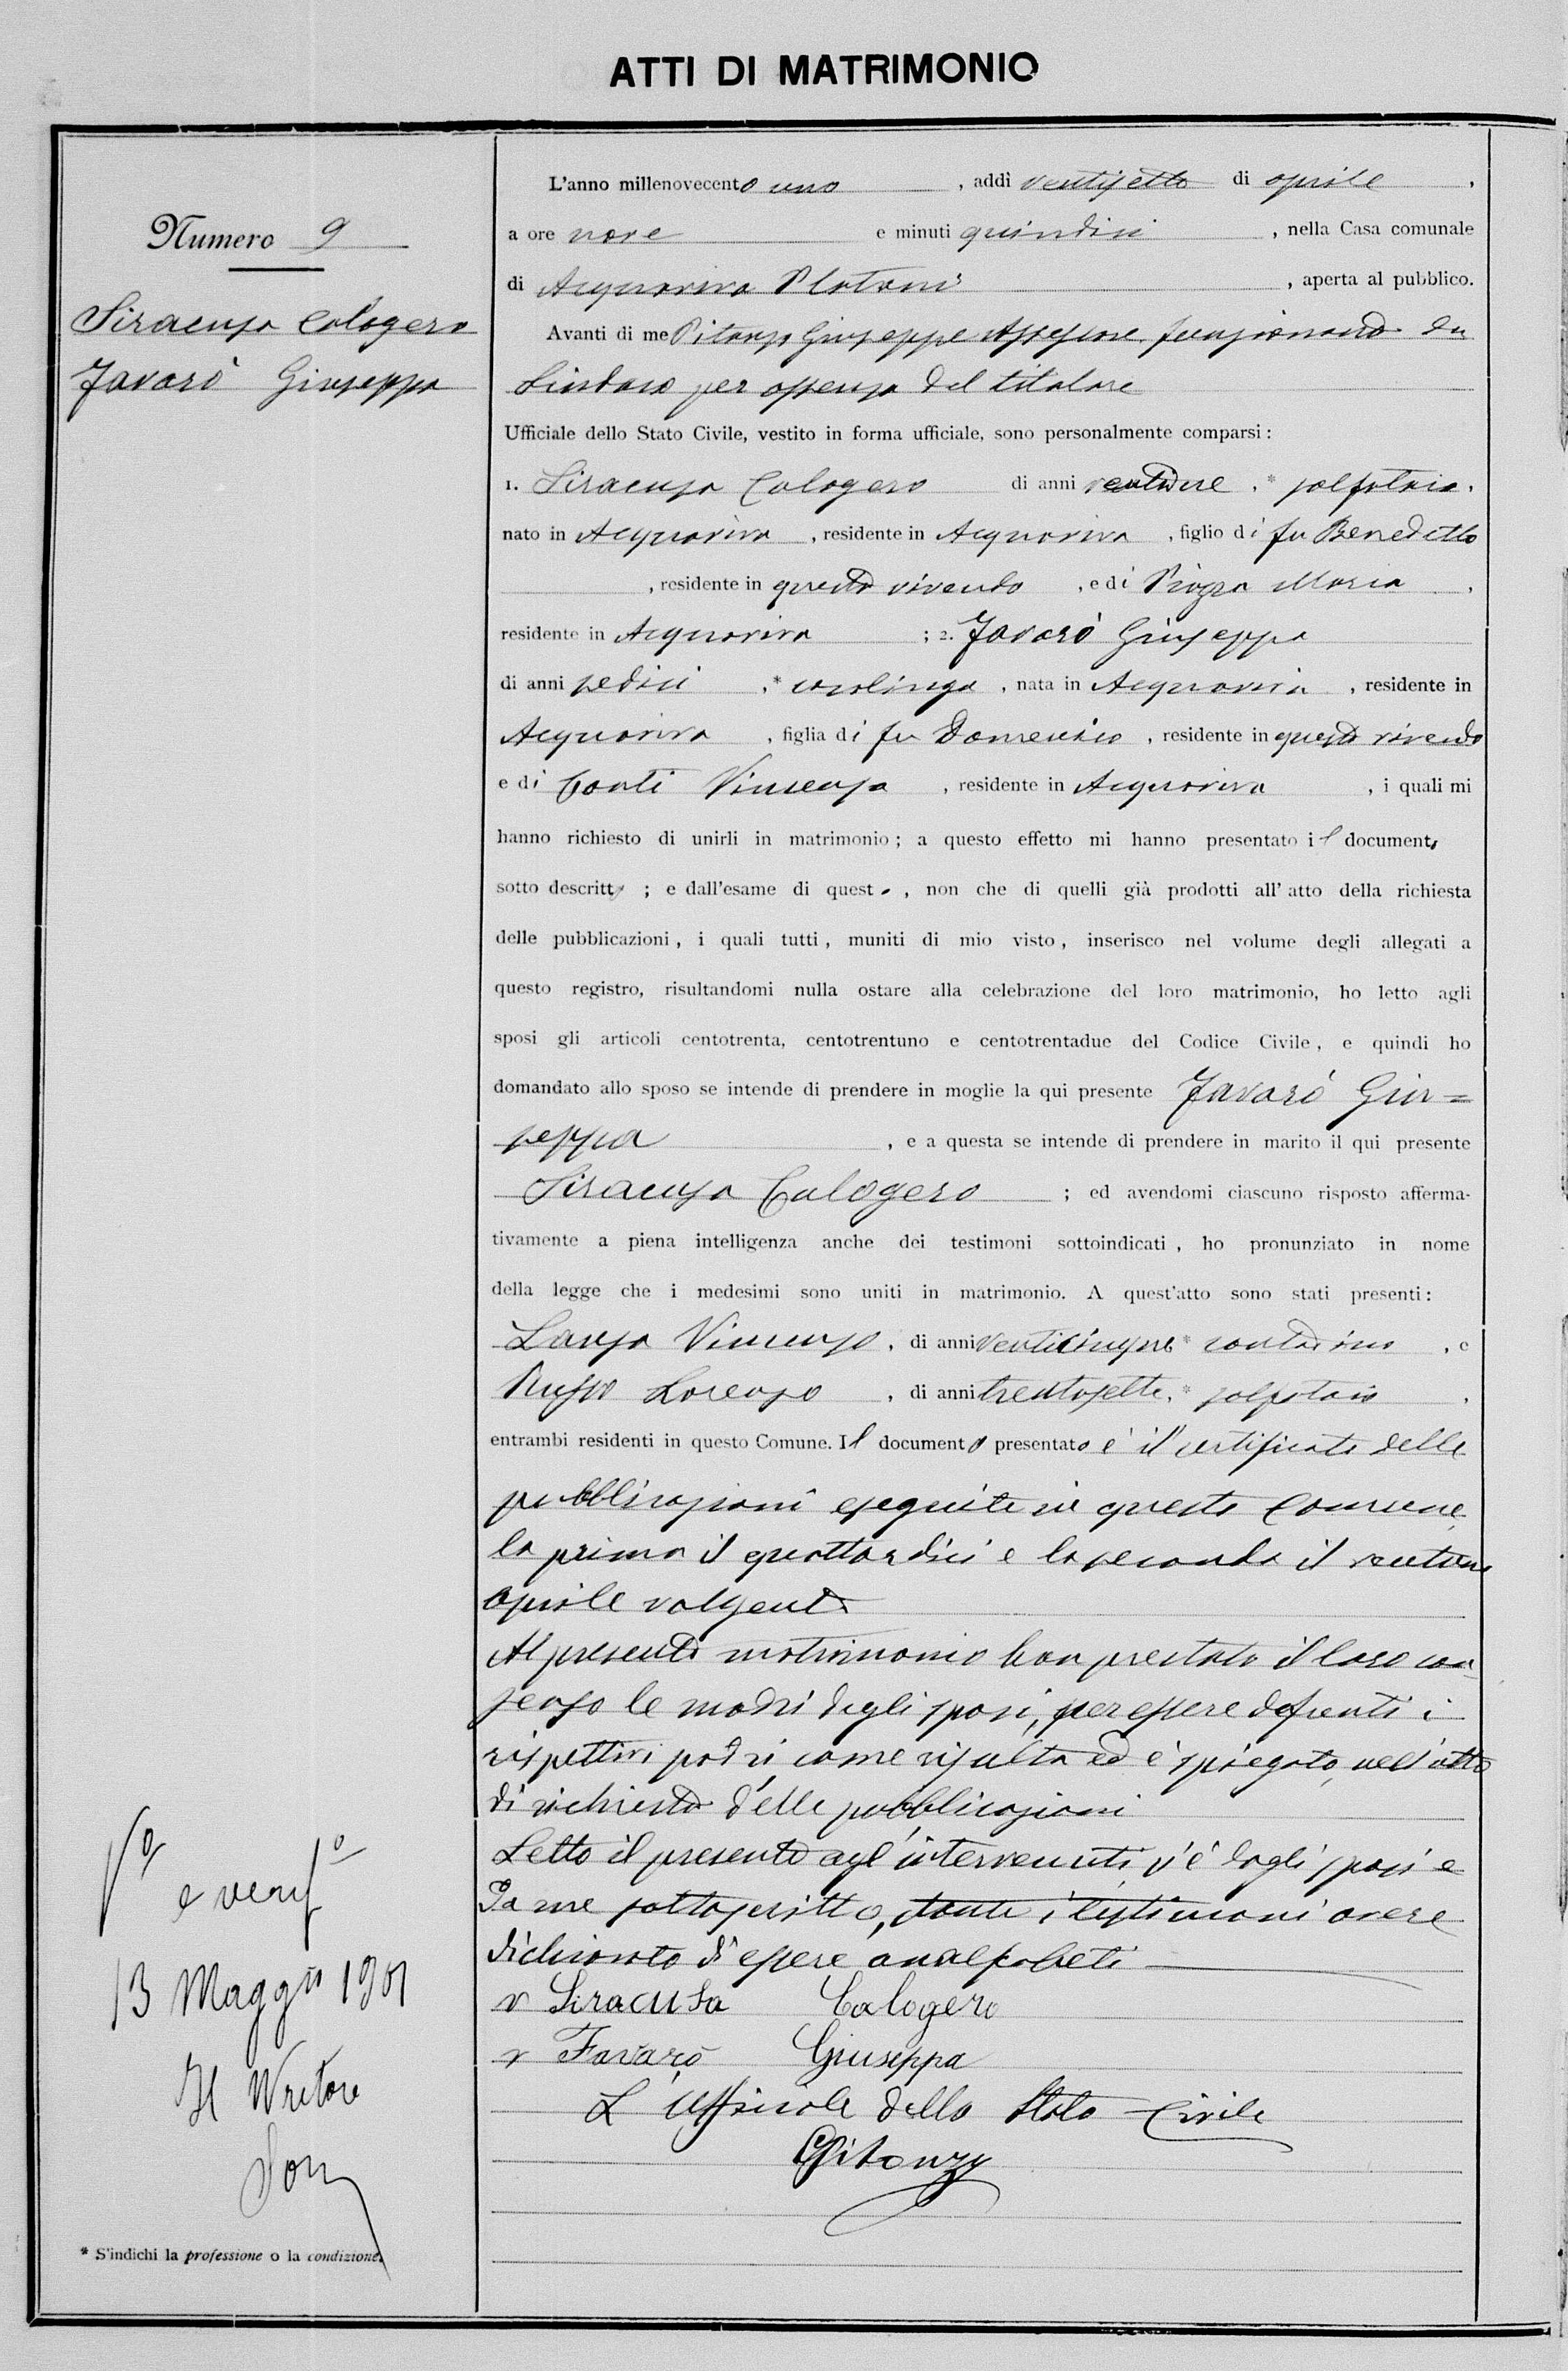 ATTI DI MATRIMONIO
Numero 9
Siracusa Calogero
Favarò Giuseppa
L'anno millenovecento uno, addì ventisette di aprile,
a ore nove e minuti quindici, nella Casa comunale
di Acquaviva Platani, aperta al pubblico.
Avanti di me Pitanza Giuseppe Assessore funzionando da
Sindaco per assenza del titolare
Ufficiale dello Stato Civile, vestito in forma ufficiale, sono personalmente comparsi:
1. Siracusa Calogero di anni, * solfataio,
nato in Acquaviva, residente in Acquaviva, figlio di fu Benedetto
, residente in questo vivendo, e di Maria,
residente in Acquaviva; 2. Favarò Giuseppa
di anni sedici, * casalinga, nata in Acquaviva, residente in
Acquaviva, figlia di fu Domenico, residente in questo vivendo
e di Conti Vincenza, residente in Acquaviva, i quali mi
hanno richiesto di unirli in matrimonio; a questo effetto mi hanno presentato il documento
sotto descritto; e dall'esame di questo, non che di quelli già prodotti all'atto della richiesta
delle pubblicazioni, i quali tutti, muniti di mio visto, inserisco nel volume degli allegati a
questo registro, risultandomi nulla ostare alla celebrazione del loro matrimonio, ho letto agli
sposi gli articoli centotrenta, centotrentuno e centotrentadue del Codice Civile, e quindi ho
domandato allo sposo se intende di prendere in moglie la qui presente Favarò Giu=
seppa, e a questa se intende di prendere in marito il qui presente
Siracusa Calogero; ed avendomi ciascuno risposto afferma-
tivamente a piena intelligenza anche dei testimoni sottoindicati, ho pronunziato in nome
della legge che i medesimi sono uniti in matrimonio. A quest'atto sono stati presenti:
Lanza Vincenzo, di anni venticinque * contadino, e
Russo Lorenzo, di anni trentasette, * solfataio,
entrambi residenti in questo Comune. Il documento presentato è il certificato delle
pubblicazioni eseguite in questo Comune
la prima il quattordici e la seconda il ventuno
aprile volgente
Al presente matrimonio han prestato il loro con
senso le madri degli sposi, per essere defunti i
rispettivi padri, come risulta ed è spiegato nell'atto
di richiesta delle pubblicazioni
Letto il presente agl'intervenuti, s'è dagli sposi e
da me sottoscritto, stante i testimoni avere
dichiarato di essere analfabeti
v Siracusa Calogero
v Favarò Giuseppa
L'Ufficiale dello Stato Civile
GPitanza
Vo e verifo
13 Maggio 1901
Il Pretore
* S'indichi la professione o la condizione.